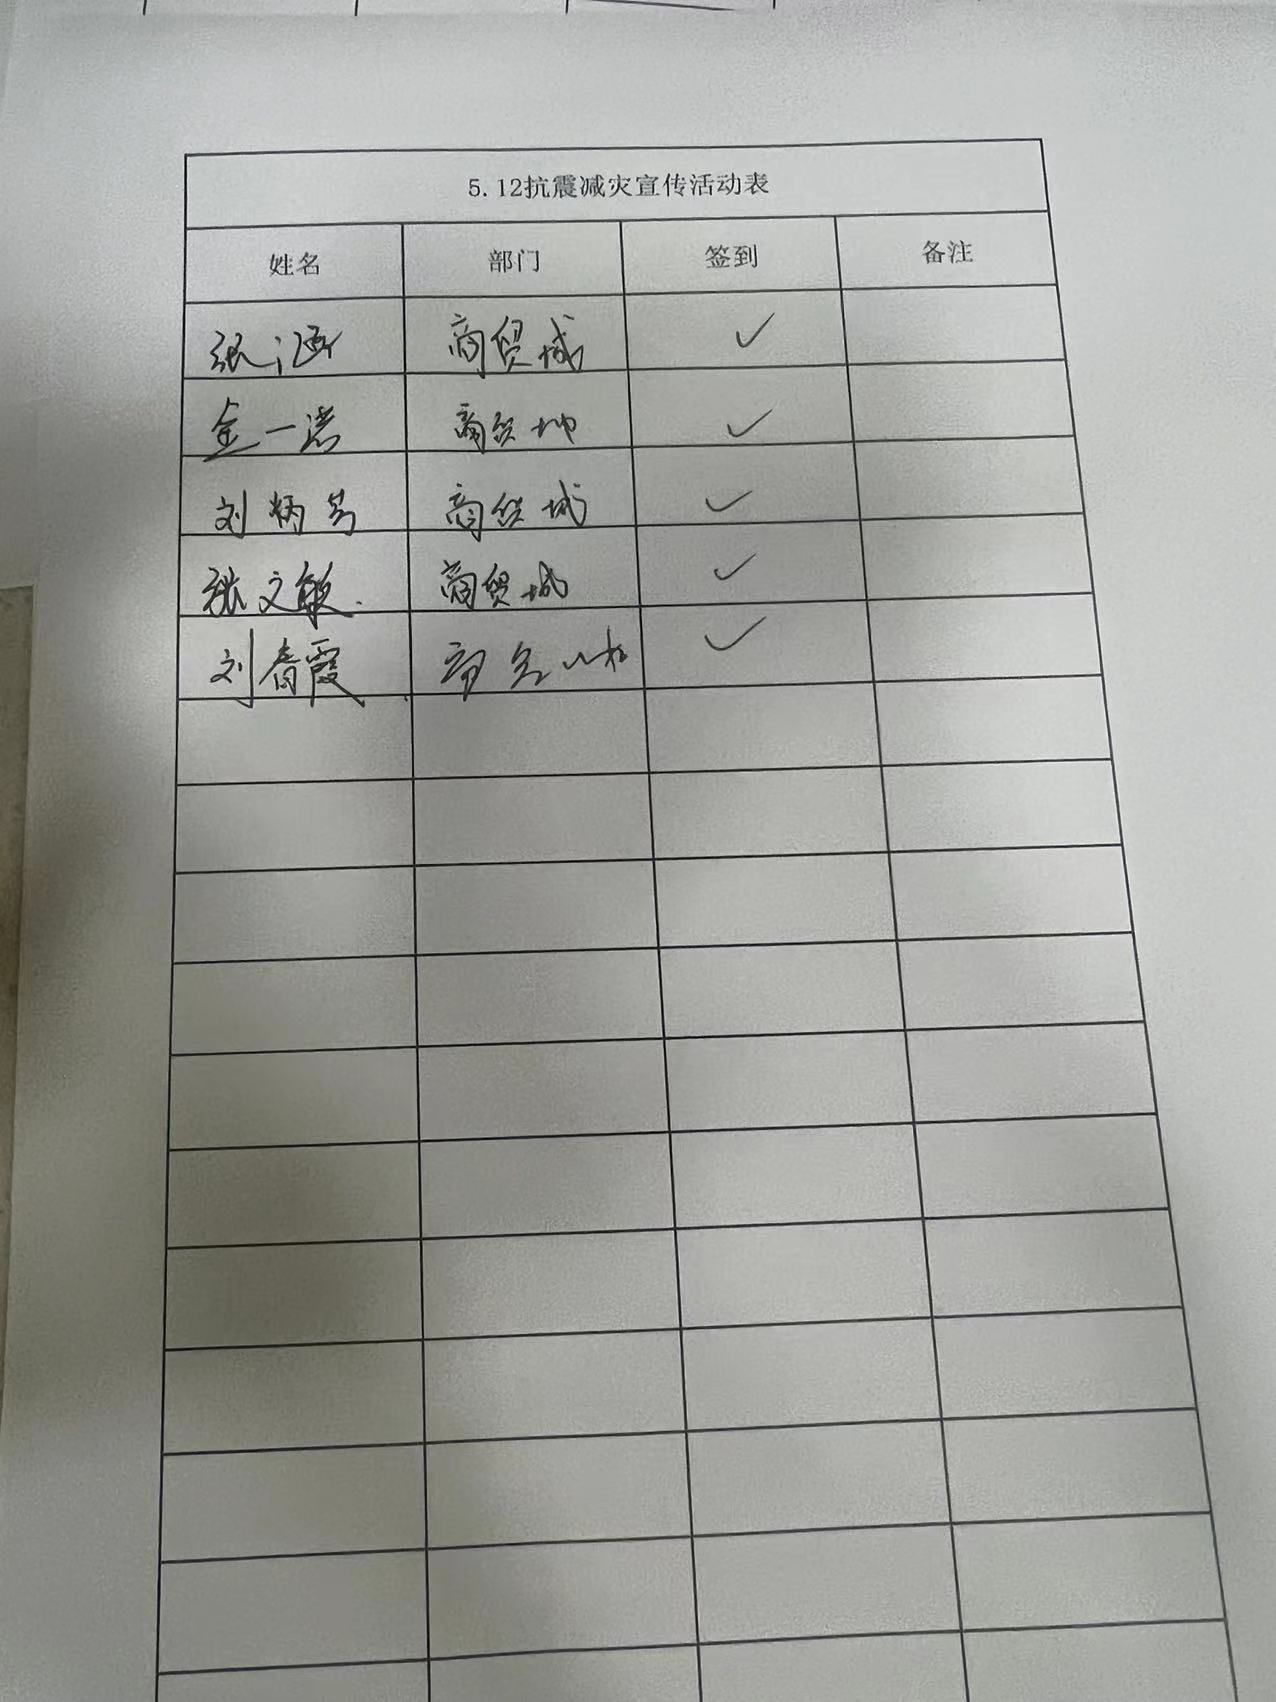 5.12抗震减灾宣传活动表
姓名 部门 签到 备注
张涵 商贸城 ✓
金一诺 商贸城 ✓
刘炳 商贸城 ✓
张文敏 商贸城 ✓
刘春霞 ✓